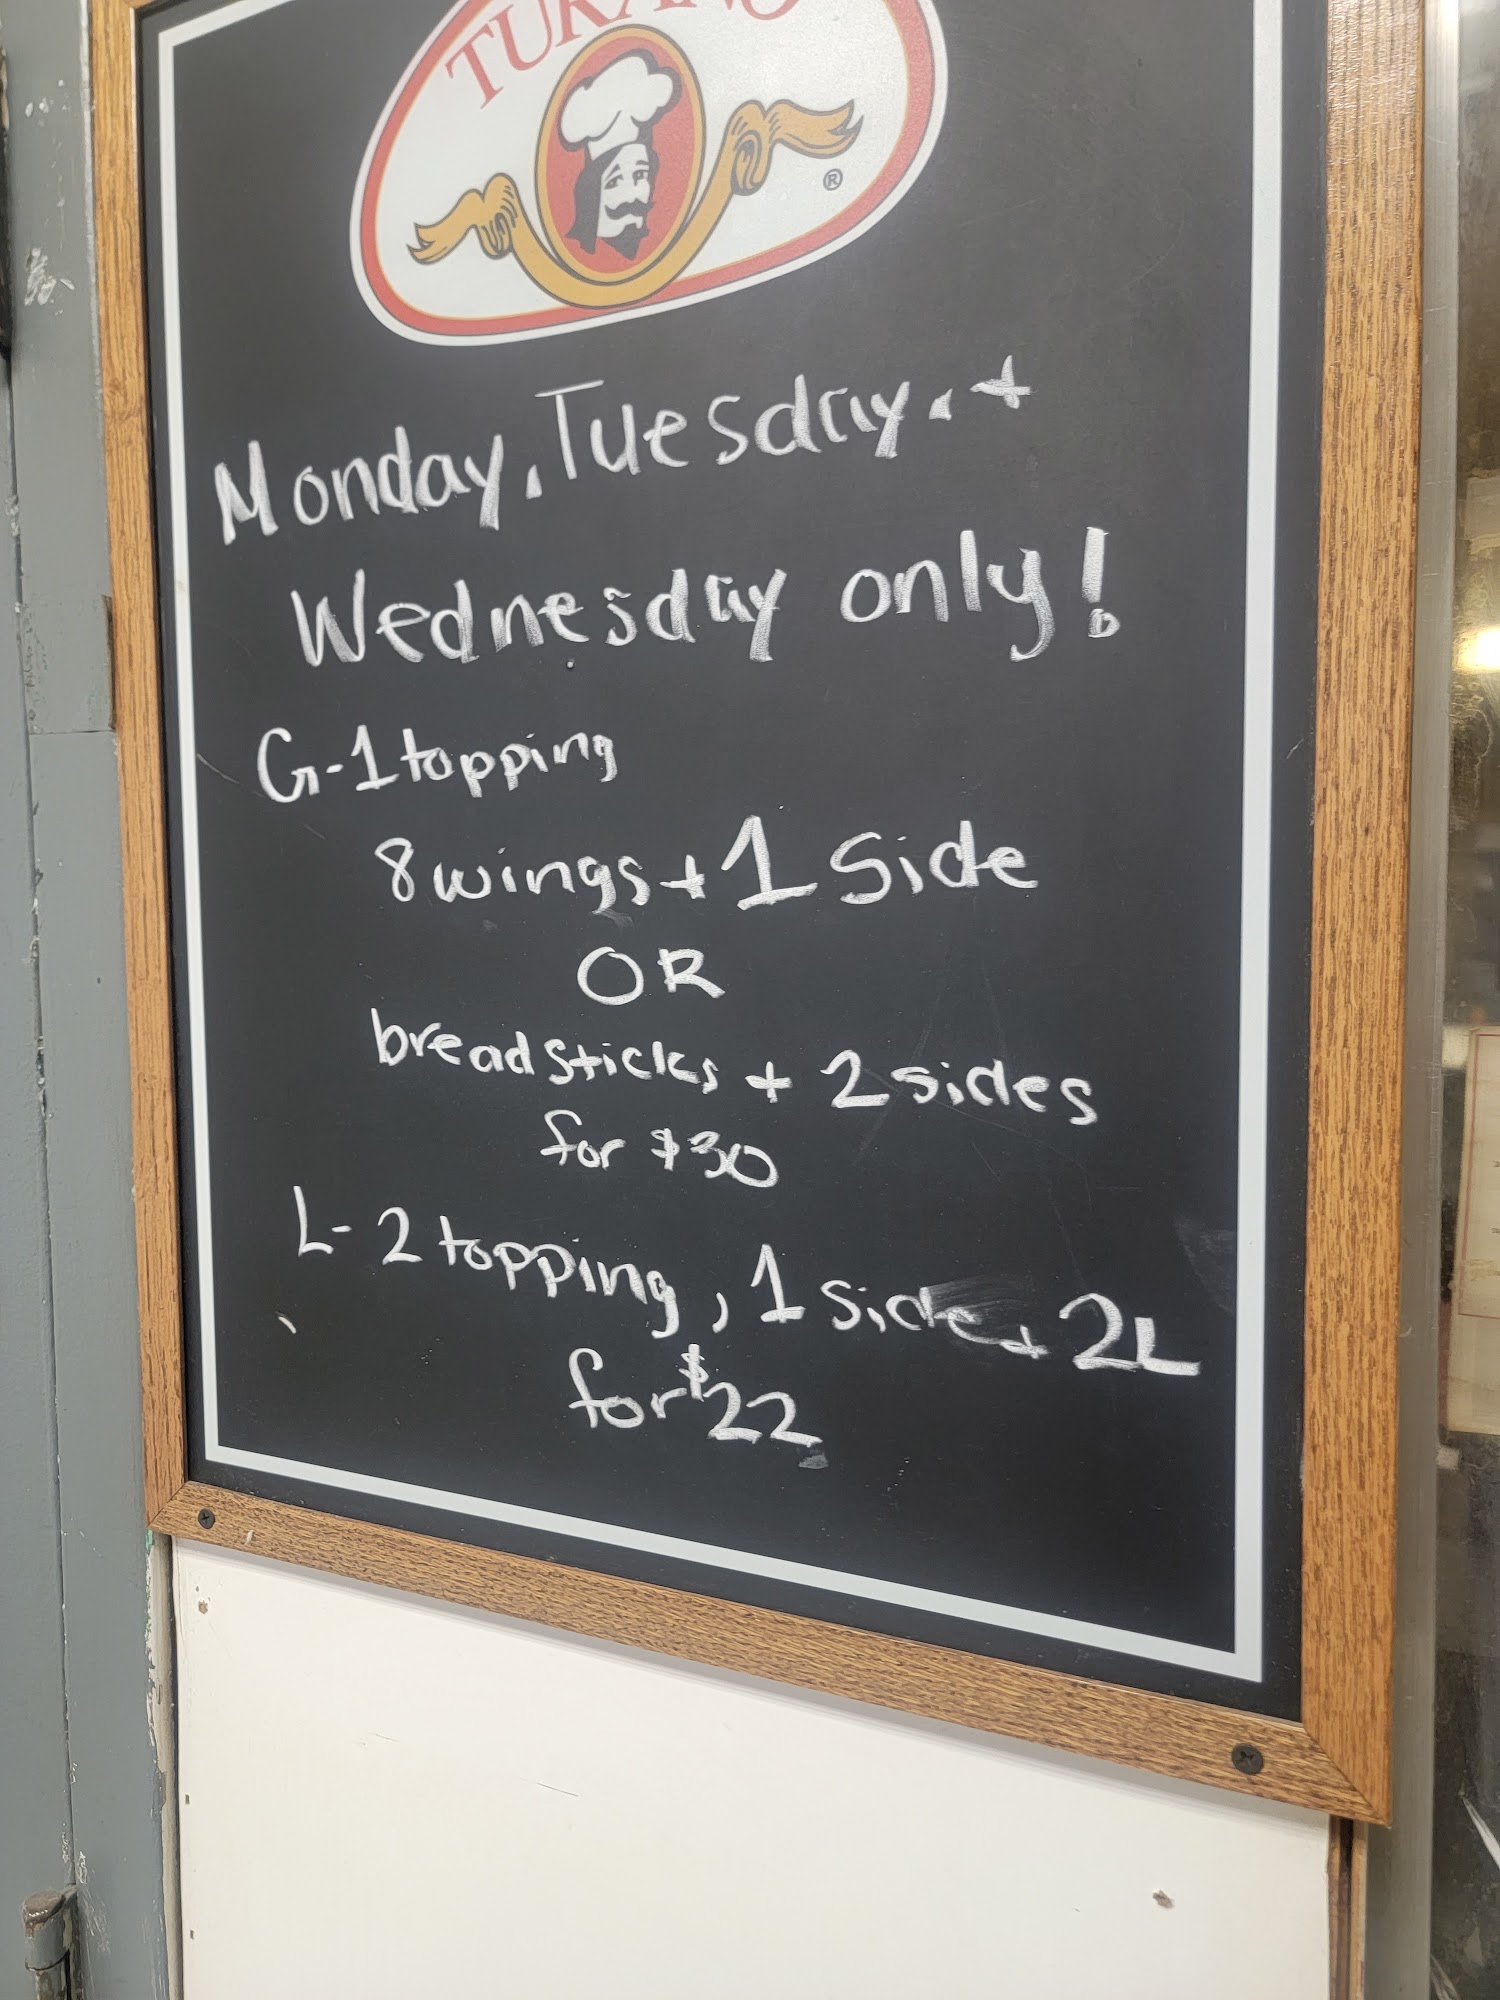 TURANO
®
Monday, Tuesday, +
Wednesday only!
G-1 topping
8 wings + 1 Side
OR
breadsticks + 2 sides
for $30
L- 2 topping, 1 side + 2L
for $22